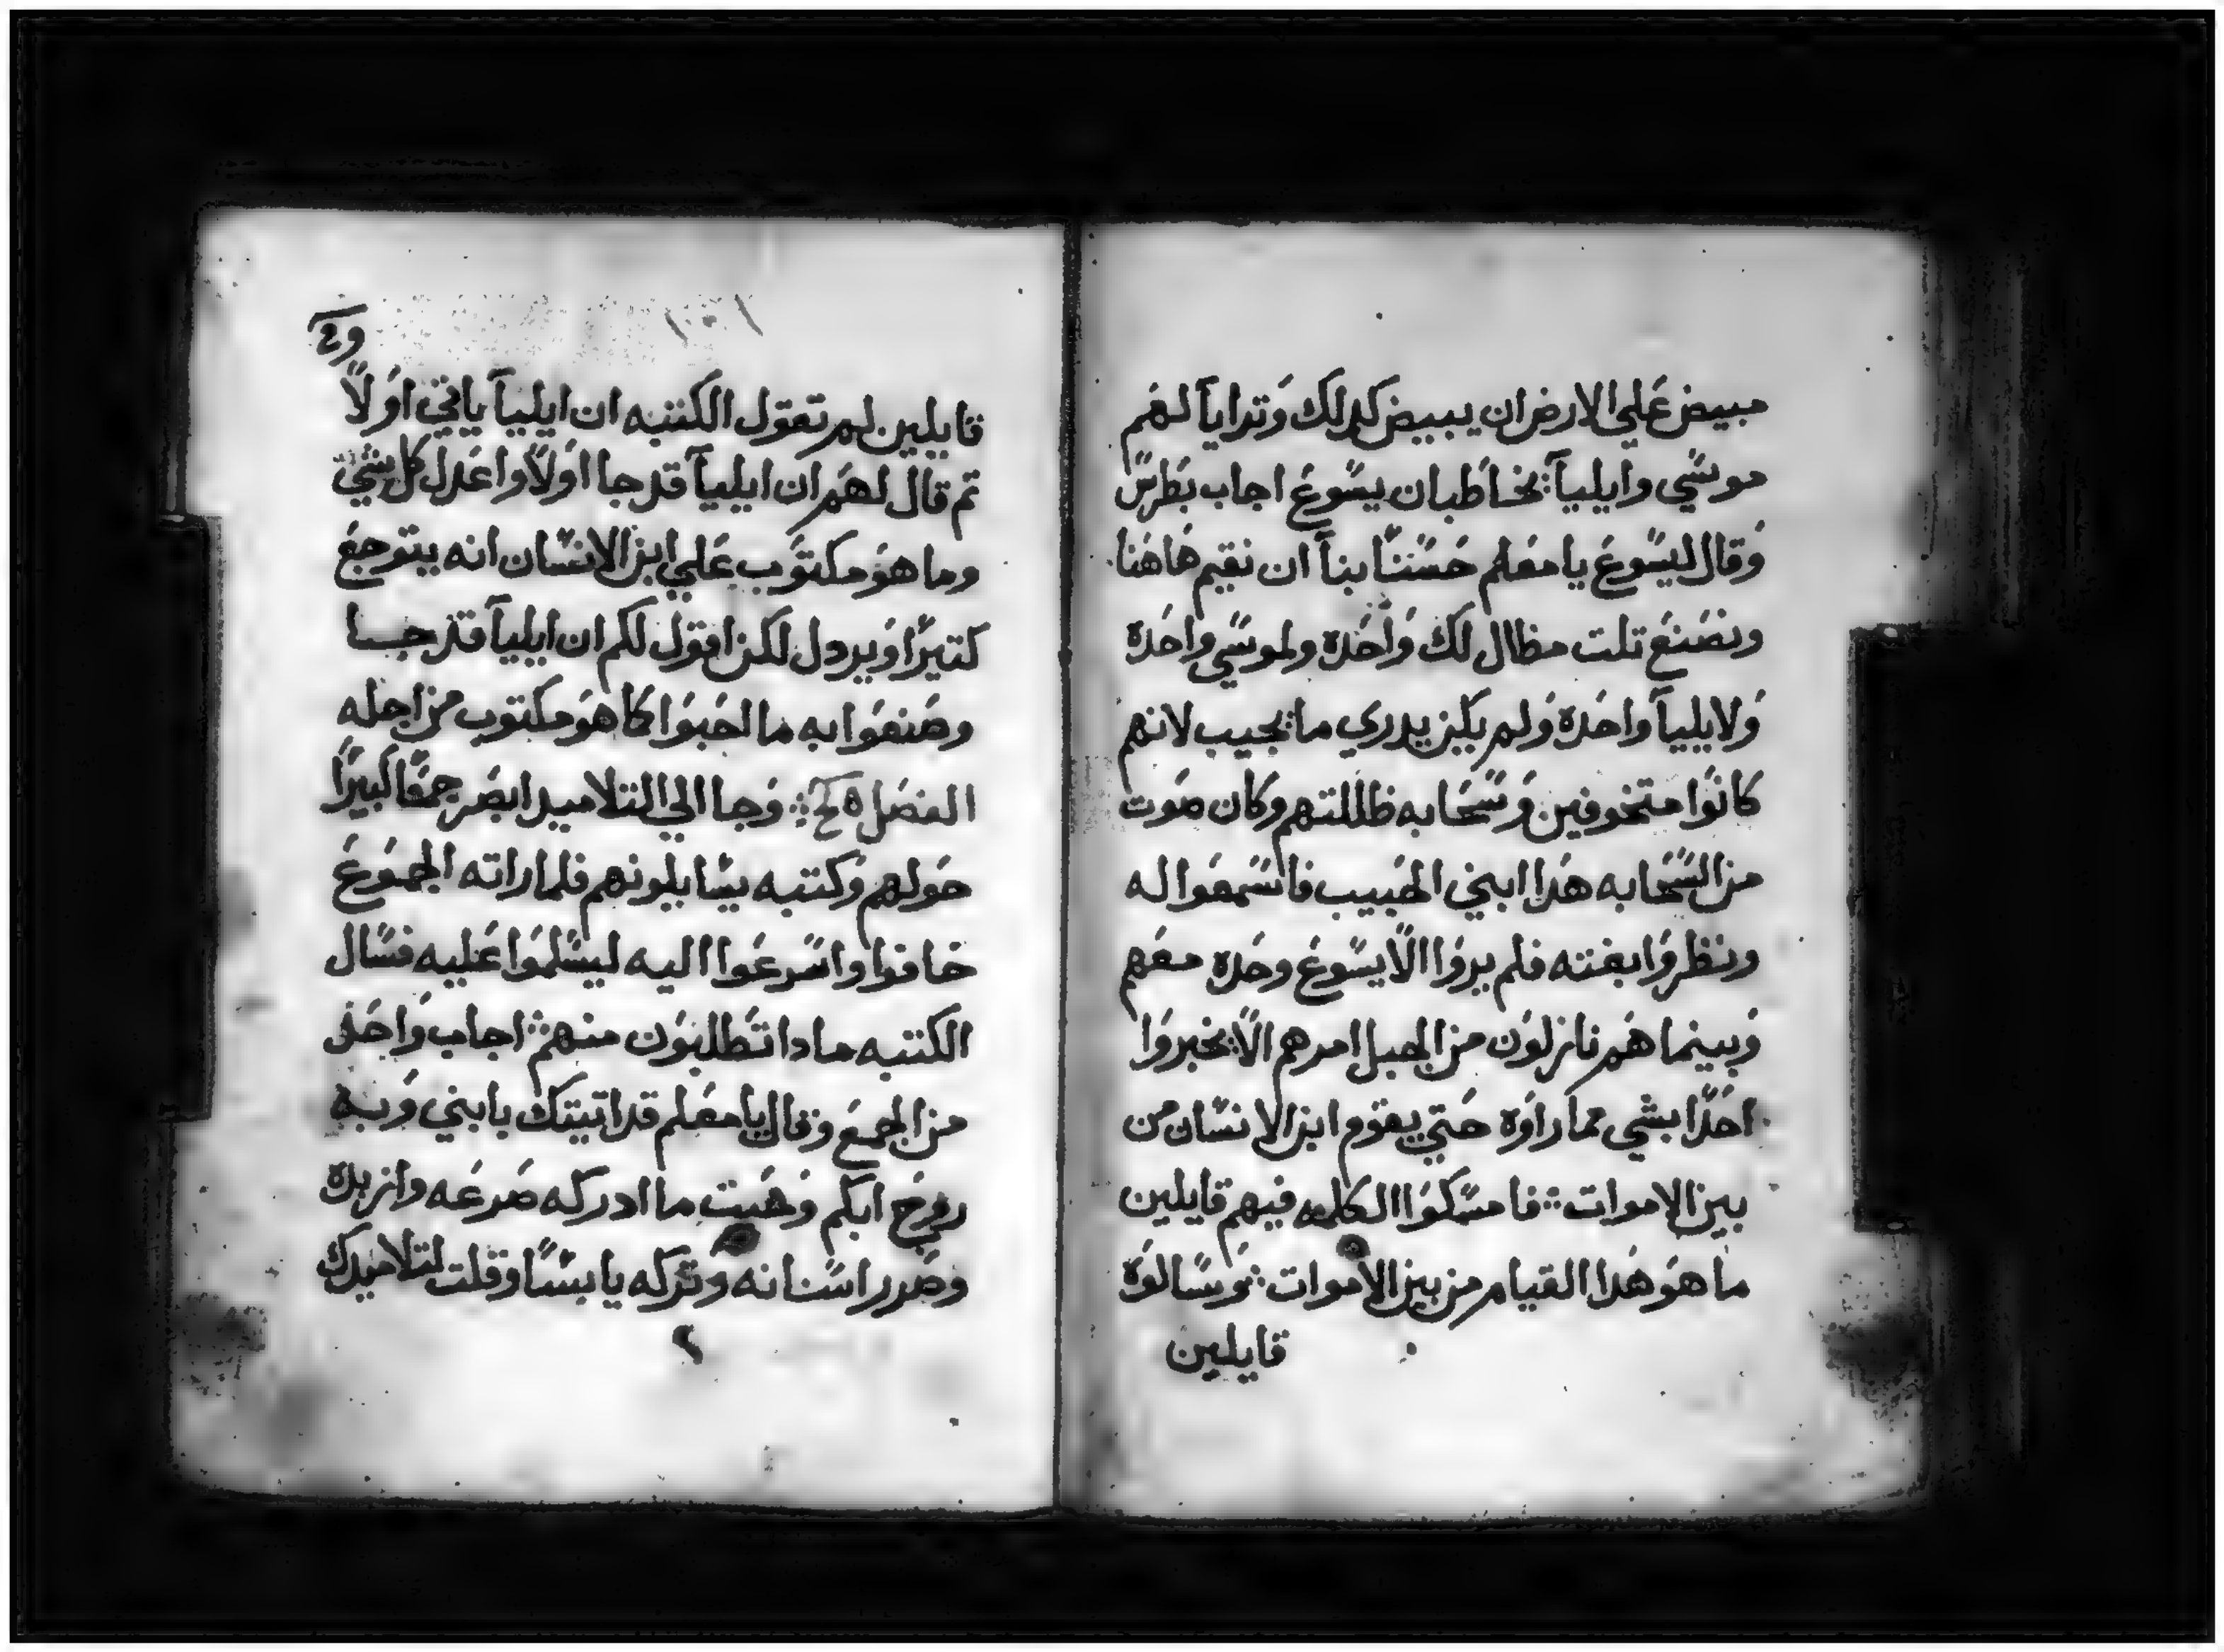 مبيض علي الارض ان يبيض كدلك وتراياآ لهم
موسي وايلياآ يخاطبان يسوع اجاب بطرس
وقال ليسوع يا معلم حسننا بناآ ان نقيم هاهنا
ونصنع تلت مظال لك واحده ولموسي واحده
ولايلياآ واحده ولم يكن يدري ما يجيب لانهم
كانوا متخوفين وسحابه ظللتهم وكان صوت
من السحابه هدا ابني الحبيب فاسمعوا له
ونظروا بغته فلم يروا الا يسوع وحده معهم
وبينما هم نازلون من الجبل امرهم الا يخبروا
احدا بشي مما راوه حتي يقوم ابن الانسان من
بين الاموات فامسكوا الكلمه فيهم قايلين
ما هو هدا القيام من بين الاموات وسالوه
قايلين
قايلين لم تقول الكتبه ان ايلياآ ياتي اولاً
تم قال لهم ان ايلياآ قد جا اولاً واعدل كل شي
وما هو مكتوب علي ابن الانسان انه يتوجع
كتيرًا ويردل لكن اقول لكم ان ايلياآ قد جا
وصنعوا به ما احبوا كما هو مكتوب من اجله
الفصل وجا الي التلاميد ابصر جمعًا كبيرًا
حولهم وكتبه يسايلونهم فلما راته الجموع
خافوا واسرعوا اليه ليسلموا عليه فسال
الكتبه مادا تطلبون منهم اجاب واحد
من الجمع وقال يا معلم قد اتيتك بابني وبه
روح ابكم وحيت ما ادركه صرعه وازبده
وصرر اسنانه وتركه يابسًا وقلت لتلاميدك